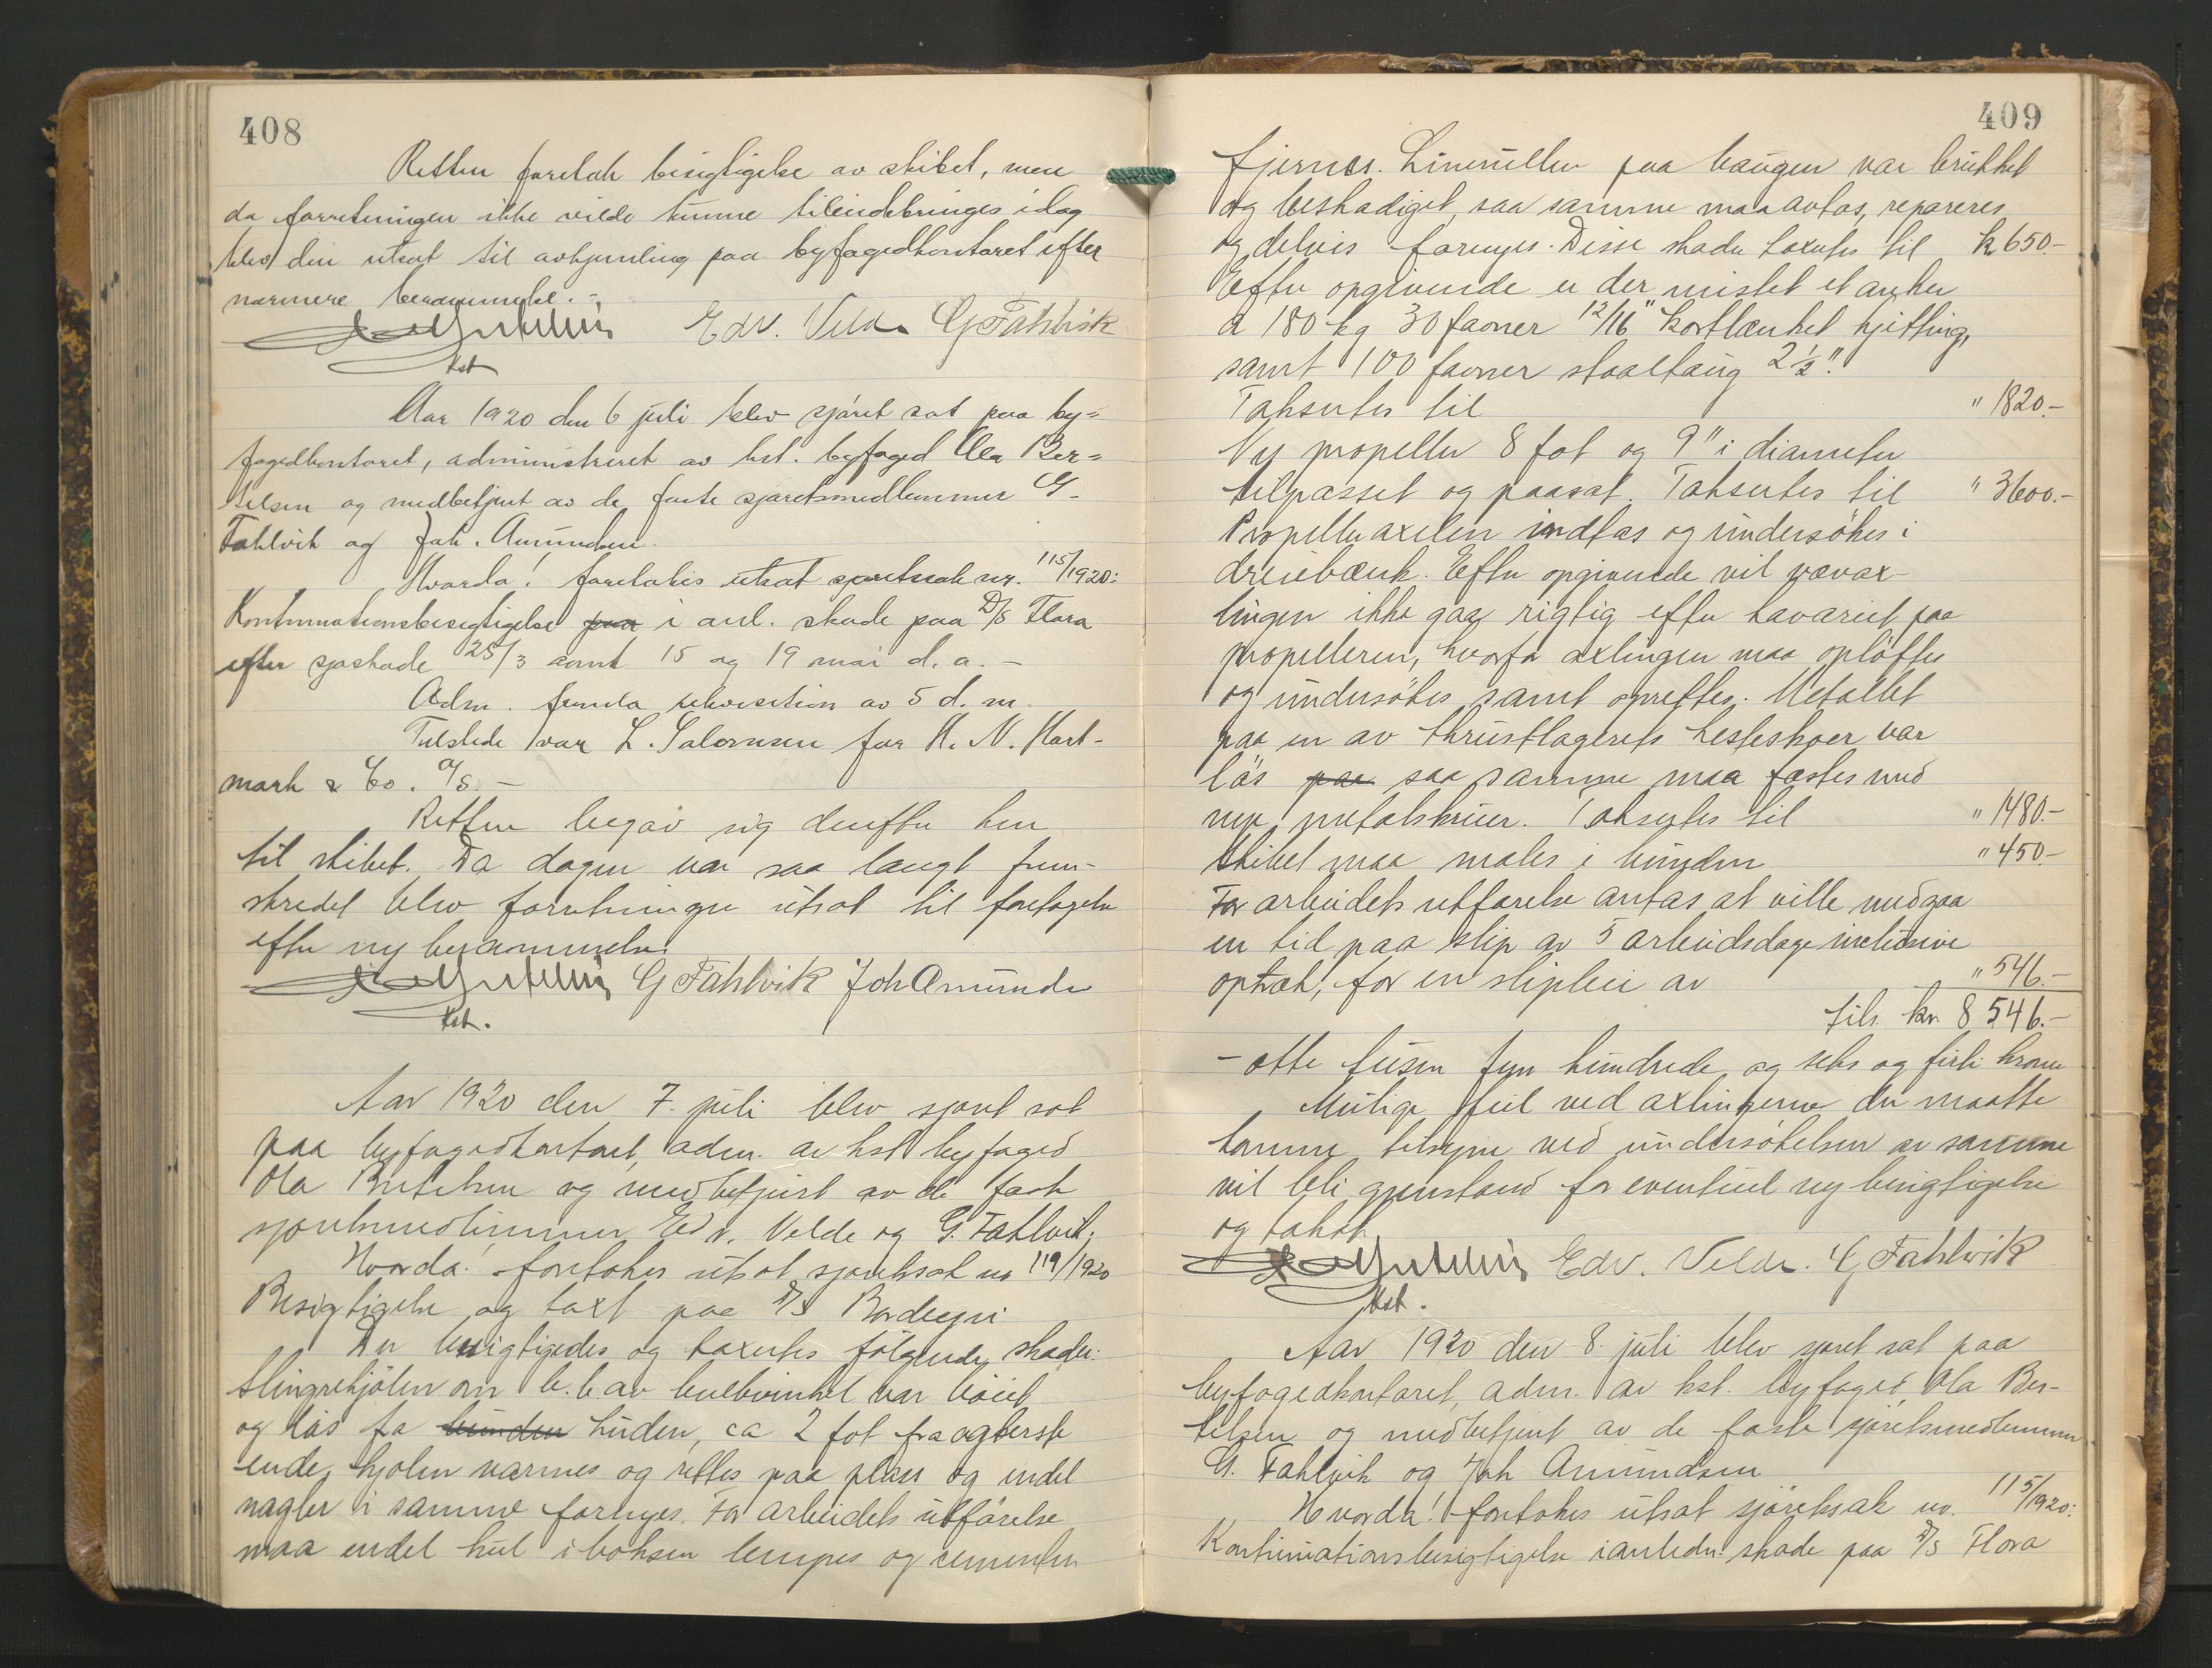 408
Retten foretok besigtigelse av skibet, men
da forretningen ikke vilde kunne tilendebringes idag
blev den utsat til avhjemling paa byfogedkontoret efter
nærmere berammelse. -
Edv. Velde G Fahlvik
kst
Aar 1920 den 6 juli blev sjøret sat paa by=
fogedkontoret, administreret av kst. byfoged Ola Ber=
telsen og medbetjent av de faste sjøretsmedlemmer G.
Fahlvik og Joh. Amundsen.
Hvorda! foretokes utsat sjøretssak nr. 115/1920:
Kontinuationsbesigtigelse paa i anl. skade paa D/S Flora
efter sjøskade 25/3 samt 15 og 19 mai d. a. -
Adm. fremla rekvisition av 5 d. m.
Tilstede var L. Salomsen for H. N. Hart-
mark & Co. A/S. -
Retten begav sig derefter hen
til skibet. Da dagen var saa langt frem-
skredet blev forretningen utsat til foretagelse
efter ny berammelse.
G Fahlvik Joh Amunds
kst.
Aar 1920 den 7. juli blev sjøret sat
paa byfogedkontoret, adm. av kst byfoged
Ola Bertelsen og medbetjent av de faste
sjøretsmedlemmer Edv. Velde og G. Fahlvik.
Hvorda! foretokes utsat sjøretssak nr 119/1920
Besigtigelse og taxt paa D/S Bordeyri
Der besigtigedes og taxertes følgende skader:
Slingrekjølen om b.b. av kulbvinkel var bøiet
og løs fra bunden huden, ca 2 fot fra agterste
ende, kjølen varmes og rettes paa plass og endel
nagler i samme fornyes. For arbeidets utførelse
maa endel kul i boksen lempes og cementen
409
fjernes. Linerullen paa baugen var brukket
og beskadiget, saa samme maa avtas, repareres
og delvis fornyes. Disse skader taxertes til k 650.-
Efter opgivende er der mistet et anker
a 180 kg 30 favner 12/16" kortlænket kjetting,
samt 100 favner staaltaug 2 1/2".
Taksertes til " 1820.-
Ny propeller 8 fot og 9" i diameter
tilpasset og paasat. Taksertes til " 3600.-
Propelleraxelen indtas og undersøkes i
dreiebænk. Efter opgivende vil ax-
lingen ikke gaa rigtig efter havariet paa
propelleren, hvorfor axlingen maa opløftes
og undersøkes samt oprettes. Metallet
paa en av thrustlagerets hesteskoer var
løs paa saa samme maa fæstes med
nye metalskruer. Taksertes til " 1480.-
Skibet maa males i bunden " 450.-
For arbeidets utførelse antas at ville medgaa
en tid paa slip av 5 arbeidsdage inclusive
optræk, for en slipleie av " 546.-
tils. kr. 8 546.-
- otte tusen fem hundrede og seks og firti kroner
Mulige feil ved axlingerne der maatte
komme tilsyne ved undersøkelsen av samme
vil bli gjenstand for eventuel ny besigtigelse
og takst
Edv. Velde. G Fahlvik
kst.
Aar 1920 den 8. juli blev sjøret sat paa
byfogedkontoret, adm. av kst. byfoged Ola Ber-
telsen og medbetjent av de faste sjøretsmedlemmer
G. Fahlvik og Joh Amundsen
Hvorda! foretokes utsat sjøretssak nr. 115/1920:
Kontinuationsbesigtigelse i anledn. skade paa D/S Flora